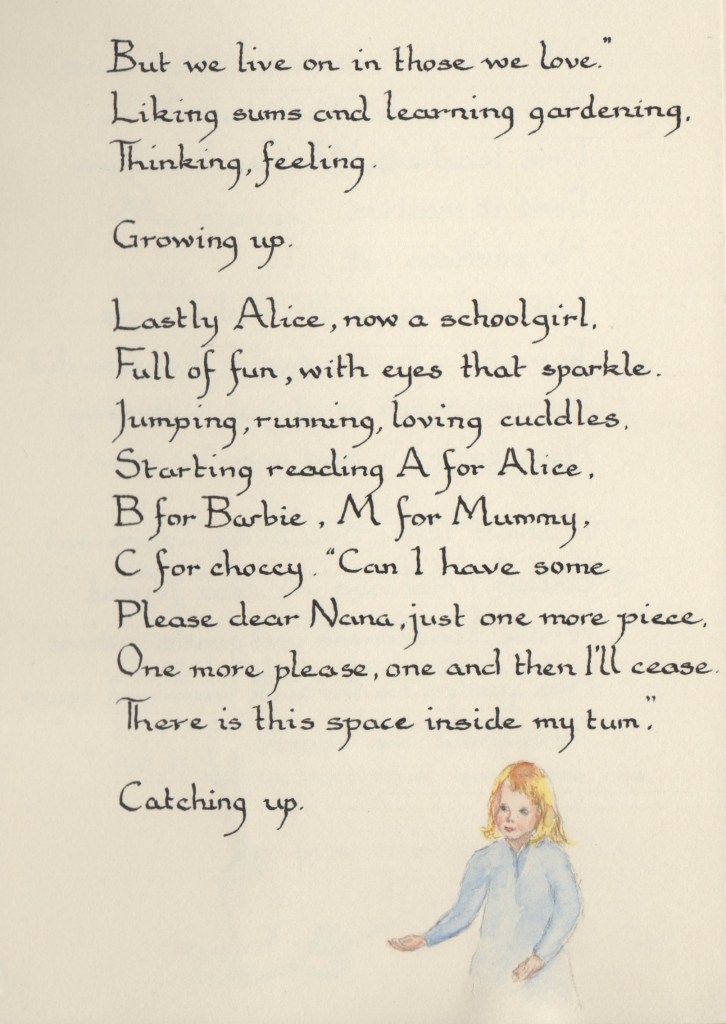 But we live on in those we love."
Liking sums and learning gardening,
Thinking, feeling.
Growing up.
Lastly Alice, now a schoolgirl,
Full of fun, with eyes that sparkle.
Jumping, running, loving cuddles,
Starting reading A for Alice,
B for Barbie, M for Mummy,
C for choccy. "Can I have some
Please dear Nana, just one more piece,
One more please, one and then I'll cease.
There is this space inside my tum".
Catching up.